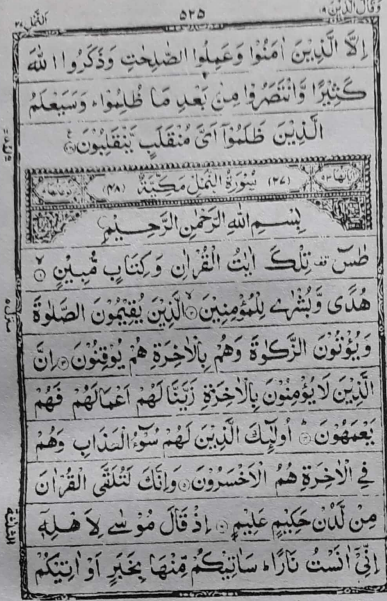 وقال الذين ١٩
٥٢٥
النمل ٢٧
اِلَّا الَّذِيْنَ اٰمَنُوْا وَعَمِلُوا الصّٰلِحٰتِ وَذَكَرُوا اللّٰهَ
كَثِيْرًا وَّانْتَصَرُوْا مِنْۢ بَعْدِ مَا ظُلِمُوْا ؕ وَسَيَعْلَمُ
الَّذِيْنَ ظَلَمُوْۤا اَىَّ مُنْقَلَبٍ يَّنْقَلِبُوْنَ
اٰيَاتُهَا ٩٣ (٢٧) سُوْرَةُ النَّمْلِ مَكِّيَّةٌ (٤٨)
بِسْمِ اللّٰهِ الرَّحْمٰنِ الرَّحِيْمِ
طٰسٓ تِلْكَ اٰيٰتُ الْقُرْاٰنِ وَكِتَابٍ مُّبِيْنٍ ١
هُدًى وَّبُشْرٰى لِلْمُؤْمِنِيْنَ ٢ الَّذِيْنَ يُقِيْمُوْنَ الصَّلٰوةَ
وَيُؤْتُوْنَ الزَّكٰوةَ وَهُمْ بِالْاٰخِرَةِ هُمْ يُوْقِنُوْنَ ٣ اِنَّ
الَّذِيْنَ لَا يُؤْمِنُوْنَ بِالْاٰخِرَةِ زَيَّنَّا لَهُمْ اَعْمَالَهُمْ فَهُمْ
يَعْمَهُوْنَ ٤ اُولٰٓئِكَ الَّذِيْنَ لَهُمْ سُوْٓءُ الْعَذَابِ وَهُمْ
فِى الْاٰخِرَةِ هُمُ الْاَخْسَرُوْنَ ٥ وَاِنَّكَ لَتُلَقَّى الْقُرْاٰنَ
مِنْ لَّدُنْ حَكِيْمٍ عَلِيْمٍ ٦ اِذْ قَالَ مُوْسٰى لِاَهْلِهٖٓ
اِنِّىْۤ اٰنَسْتُ نَارًا ؕ سَاٰتِيْكُمْ مِّنْهَا بِخَبَرٍ اَوْ اٰتِيْكُمْ